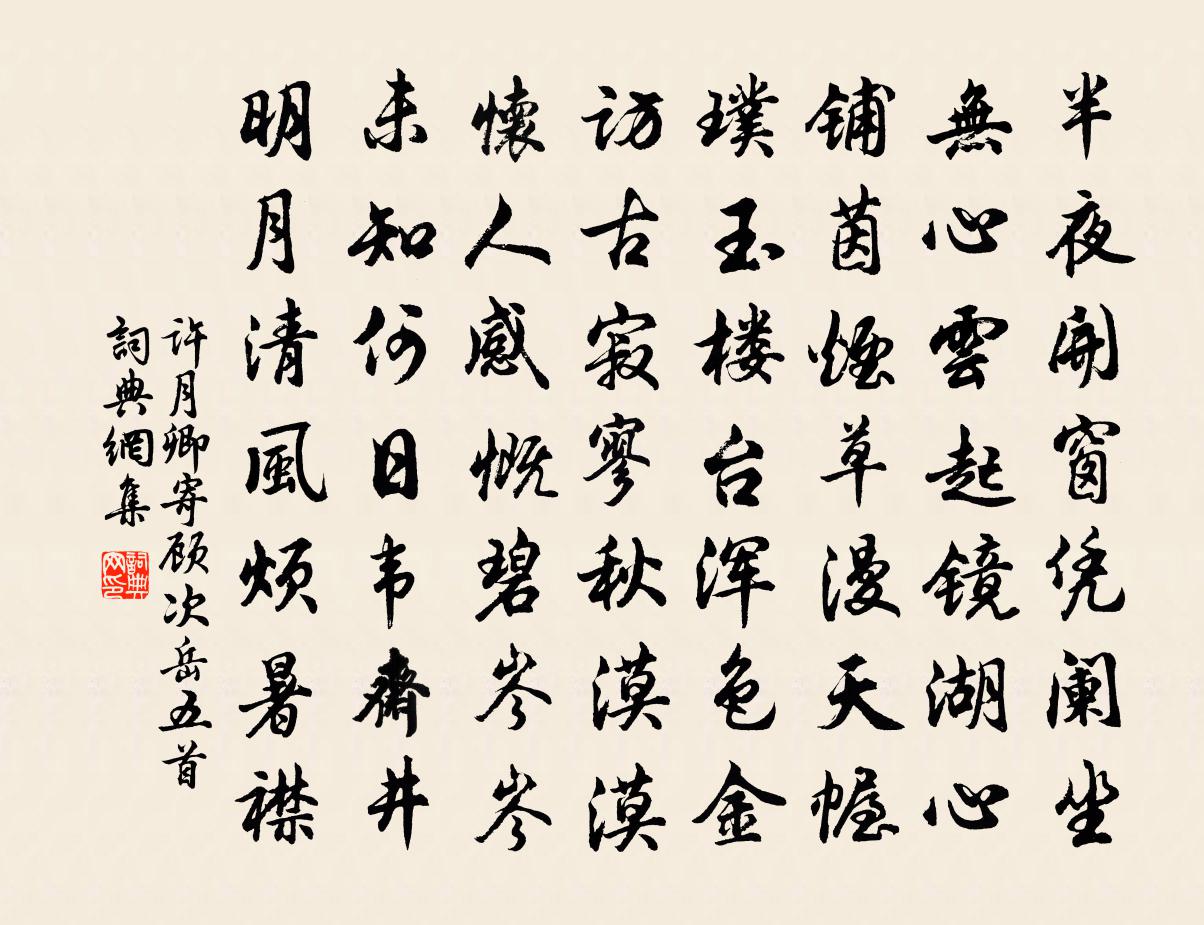 半夜開窗凭阑坐
無心雲起镜湖心
铺茵煙草漫天幄
璞玉楼台浑色金
访古寂寥秋漠漠
懷人感慨碧岑岑
未知何日韦齋井
明月清風烦暑襟
许月卿寄顾次岳五首
詞典網集
詞典网印